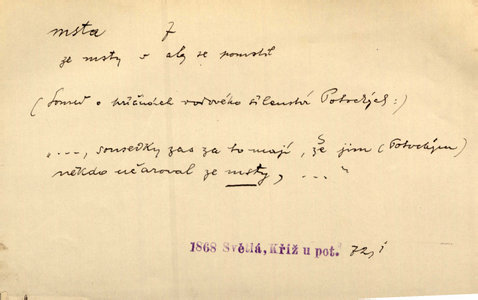 msta f
ze msty = aby se pomstil
(Soud o příčinách rodového šílenství Potockých:)
„..., sousedky zas za to mají, že jim (Potockým)
někdo učaroval ze msty, ..."
1868 Světlá, Kříž u pot. 72, i